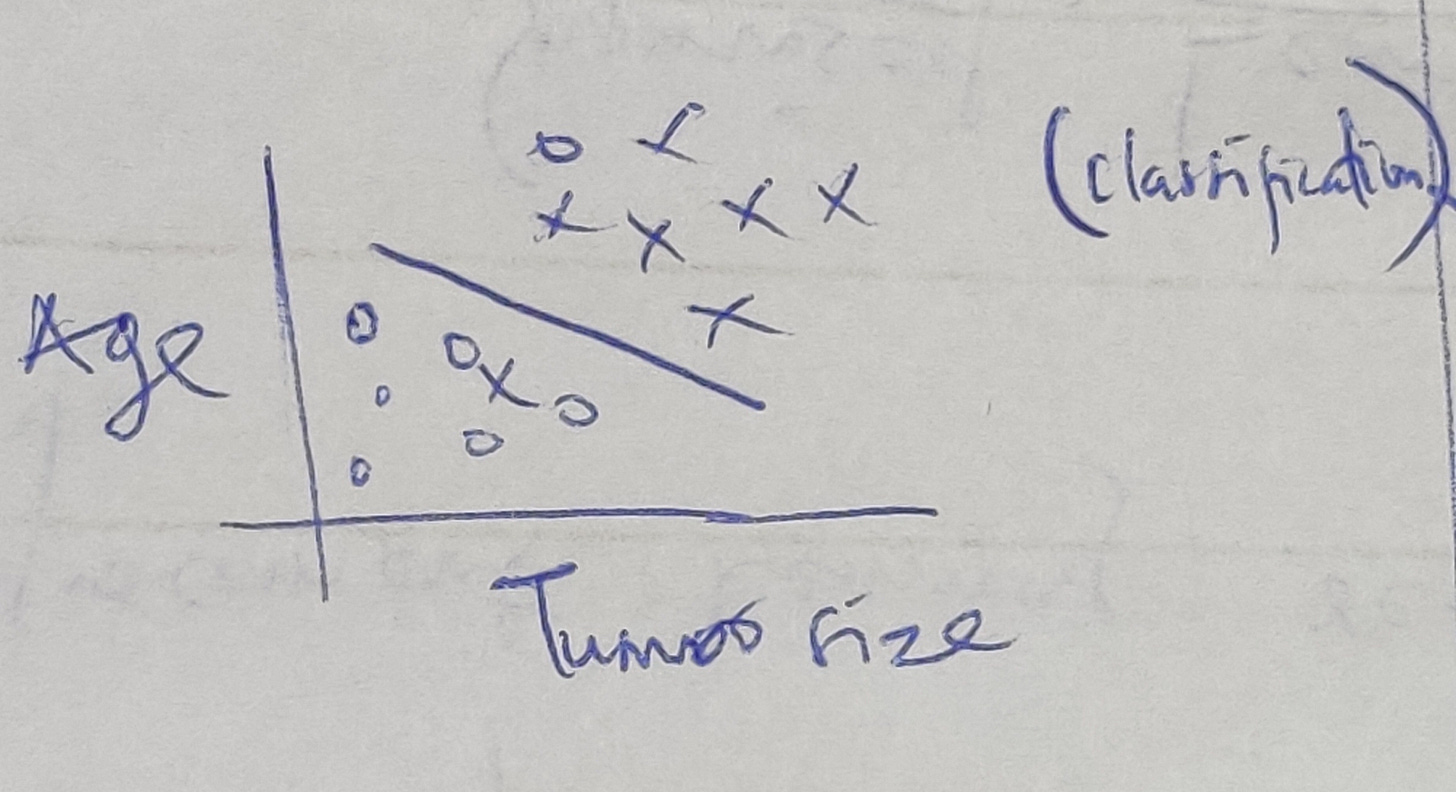 (classification)
Age
Tumor size